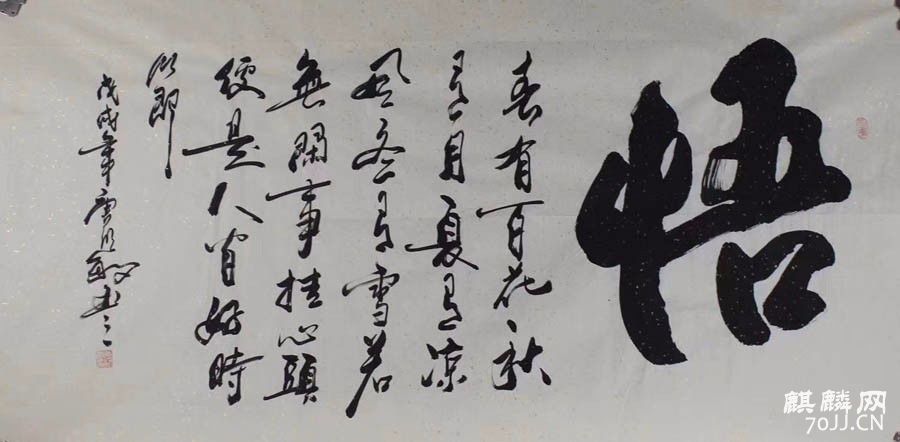 悟
春有百花、秋
有月夏有凉
风冬有雪若
無閑事挂心頭
便是人間好時
戊戌年
書
麒麟网
70JJ.CN